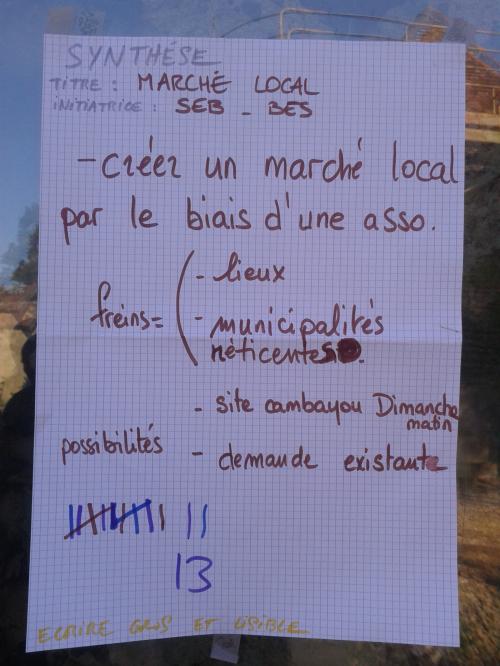 SYNTHÉSE
TITRE : MARCHÉ LOCAL
INITIATRICE : SEB - BES
- créer un marché local
par le biais d'une asso.
freins = ( - lieux
- municipalités
réticentes.
- site cambayou Dimanche
matin
possibilités
- demande existante
13
ECRIRE GROS ET LISIBLE